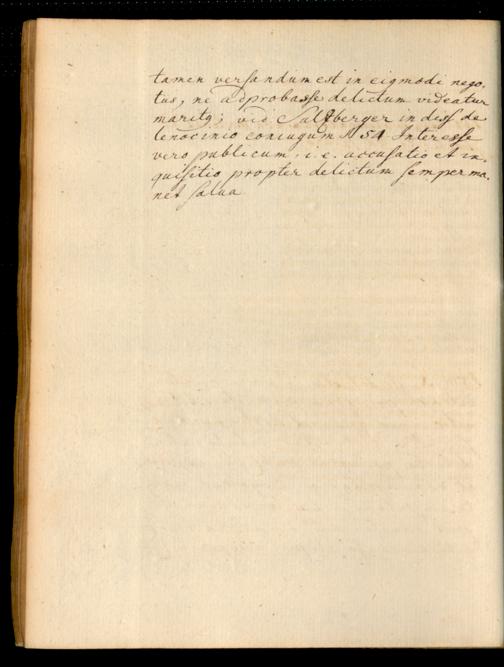 tamen versandum est in eiqmodi nego-
tiis, ne adprobasse delictum videatur
maritq; vid Saltzberger in diss de
lenocinio coniugum § 54. Interesse
vero publicum, i. e. accusatio et in-
quisitio propter delictum semper ma-
net salva